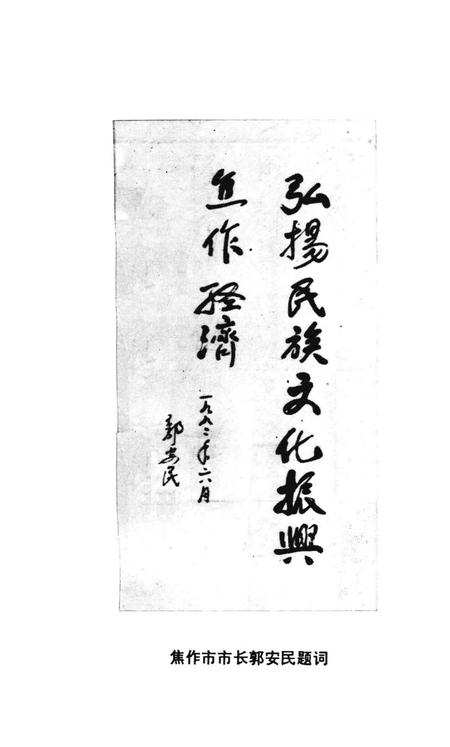 弘揚民族文化振興
焦作经濟
一九九二年六月
郭安民
焦作市市长郭安民题词